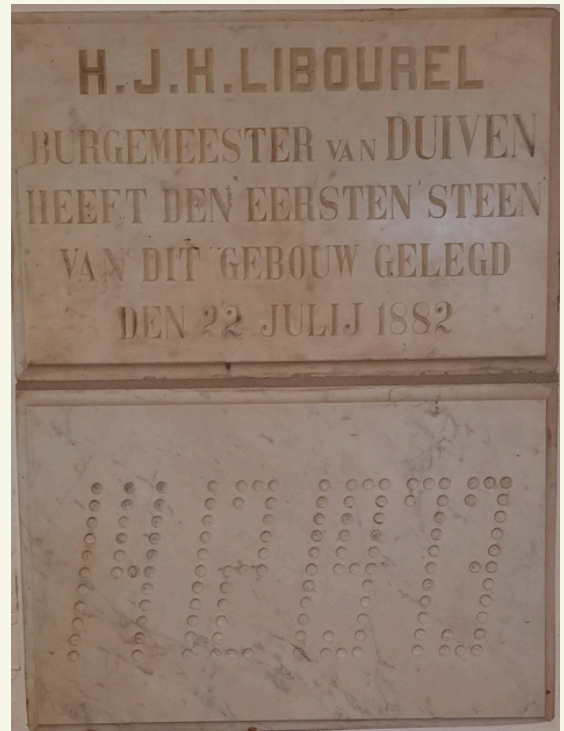 H.J.H.LIBOUREL
BURGEMEESTER VAN DUIVEN
HEEFT DEN EERSTEN STEEN
VAN DIT GEBOUW GELEGD
DEN 22 JULIJ 1882